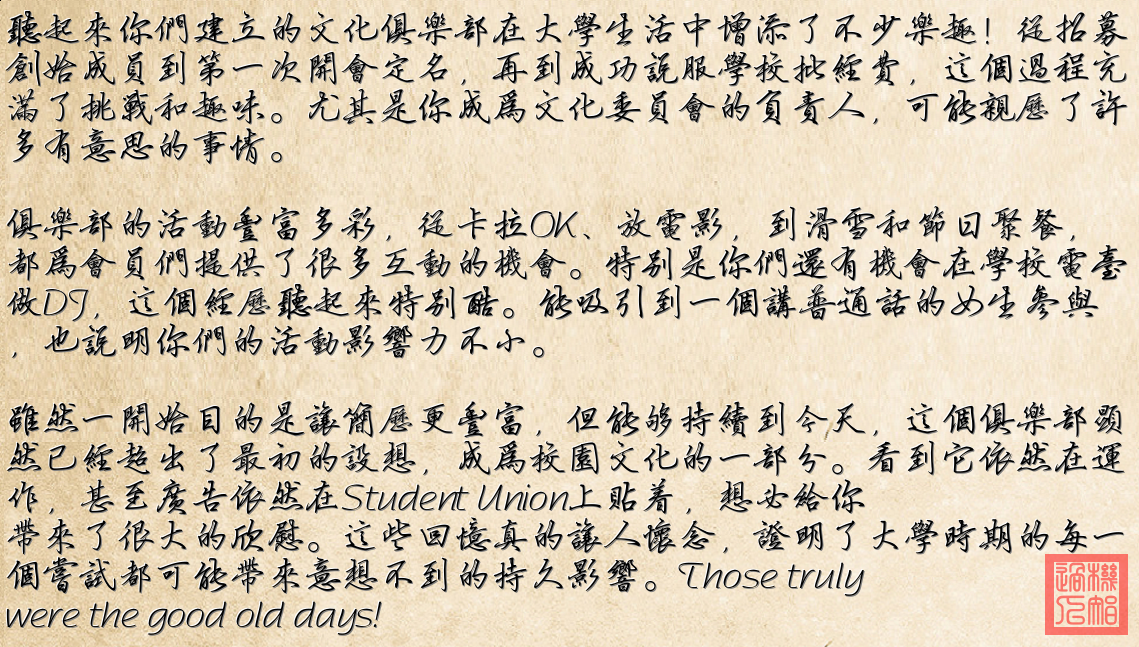 聽起來你們建立的文化俱樂部在大學生活中增添了不少樂趣！從招募
創始成員到第一次開會定名，再到成功說服學校批經費，這個過程充
滿了挑戰和趣味。尤其是你成爲文化委員會的負責人，可能親歷了許
多有意思的事情。
俱樂部的活動豐富多彩，從卡拉OK、放電影，到滑雪和節日聚餐，
都爲會員們提供了很多互動的機會。特別是你們還有機會在學校電臺
做DJ，這個經歷聽起來特別酷。能吸引到一個講普通話的女生參與
，也說明你們的活動影響力不小。
雖然一開始目的是讓簡歷更豐富，但能够持續到今天，這個俱樂部顯
然已經超出了最初的設想，成爲校園文化的一部分。看到它依然在運
作，甚至廣告依然在Student Union上貼着，想必給你
帶來了很大的欣慰。這些回憶真的讓人懷念，證明了大學時期的每一
個嘗試都可能帶來意想不到的持久影響。Those truly
were the good old days!